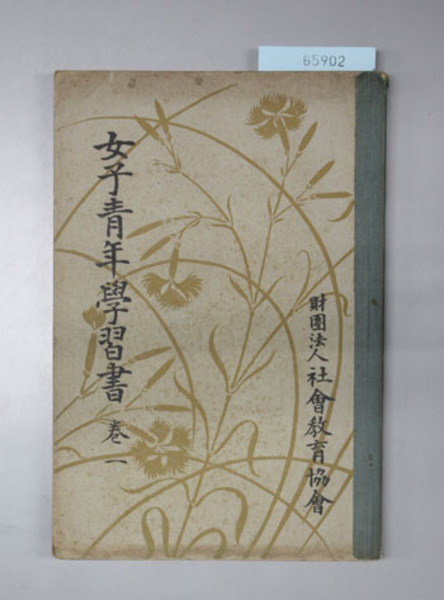 65902
女子青年學習書 卷一
財團法人 社會教育協會